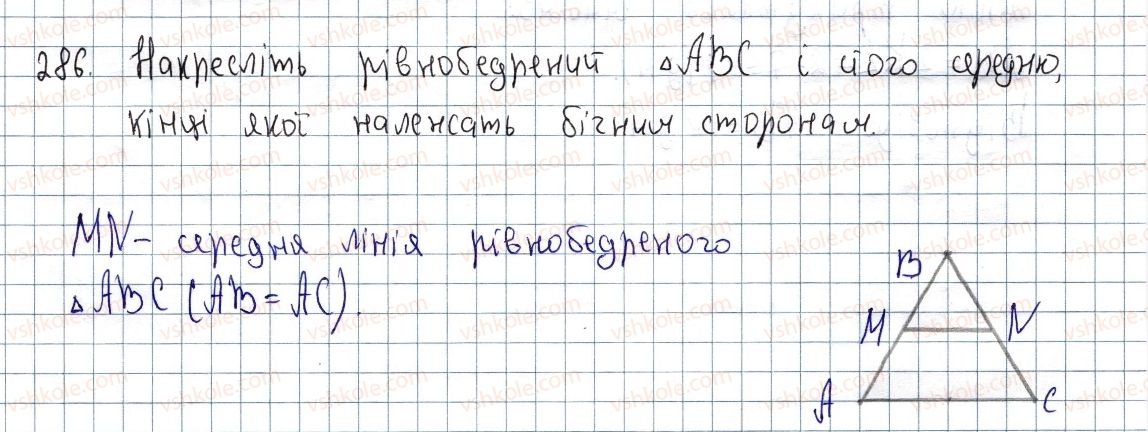 286. Накресліть рівнобедрений △ABC і його середню,
кінці якої належать бічним сторонам.
MN – середня лінія рівнобедреного
△ABC (AB = AC).
B
M N
A C